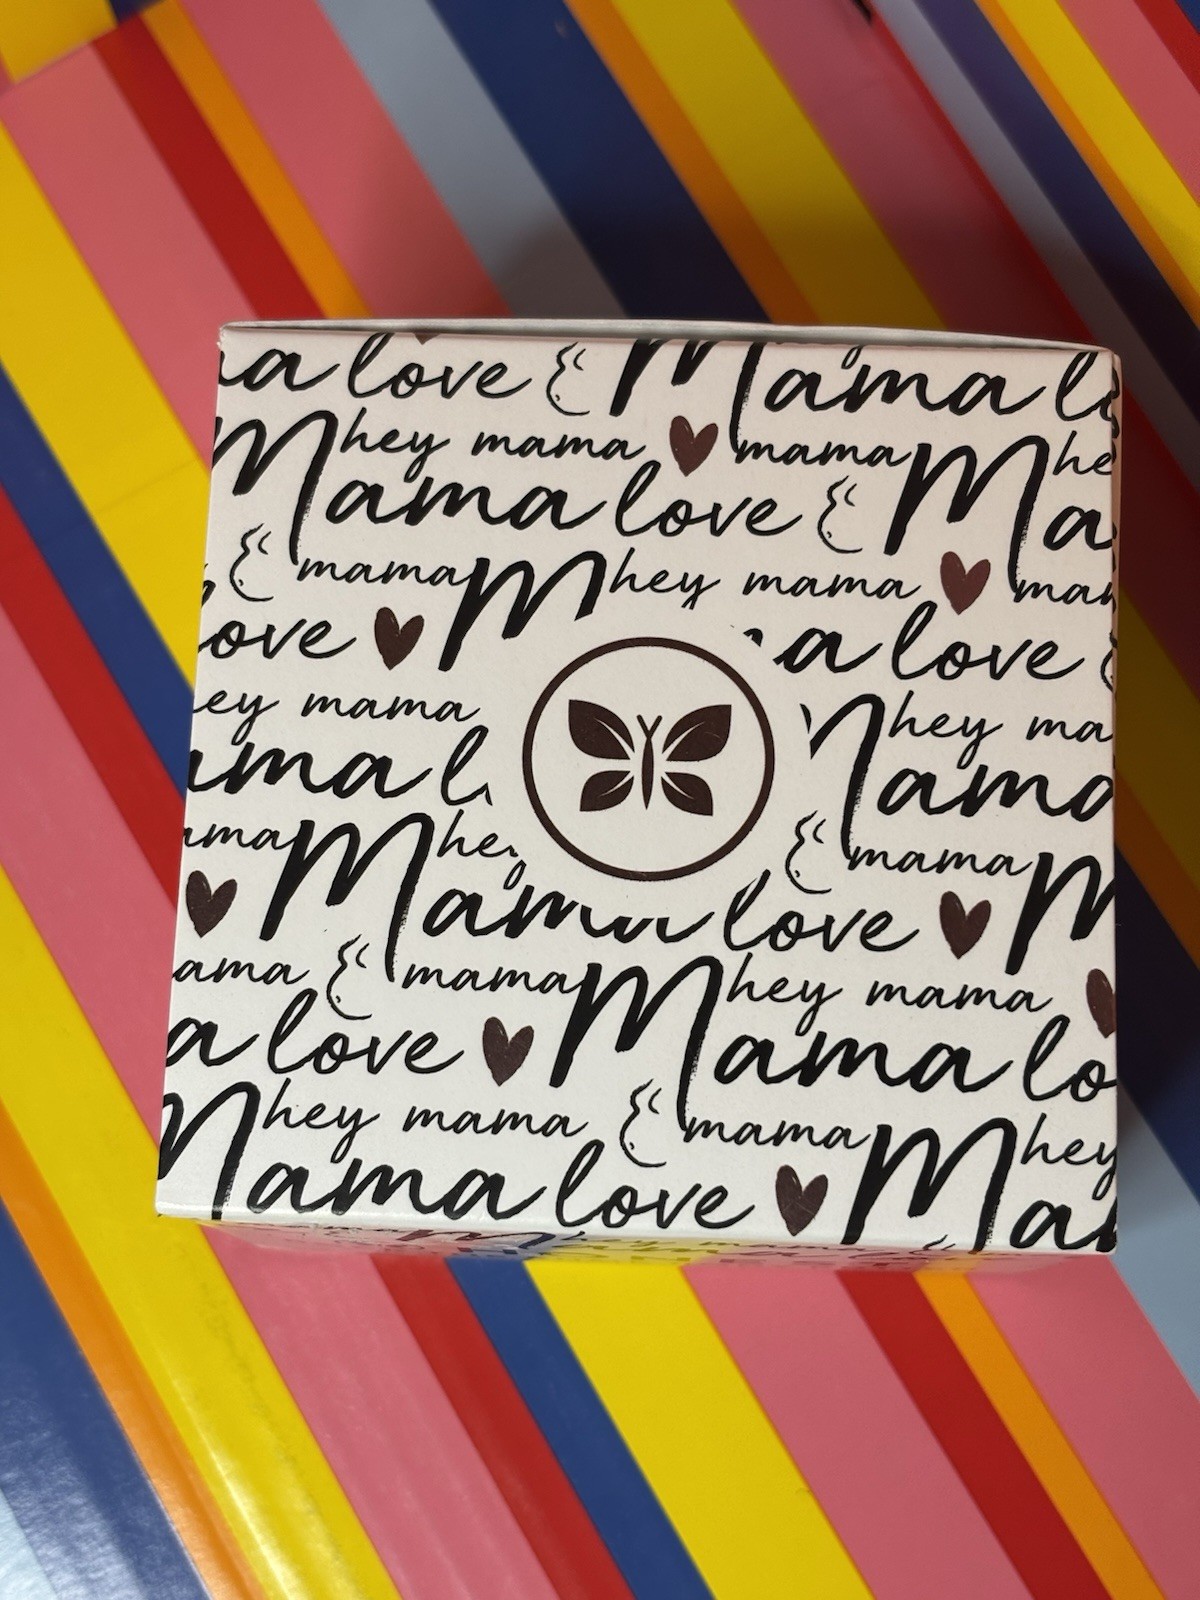 a love Mama lo
hey mama mama he
Mama love Ma
mama hey mama mam
ove a love
ey mama hey ma
ama l ama
ama he mama
Mama love
ama mama hey mama
a love Mama lo
hey mama mama hey
Mama love Ma